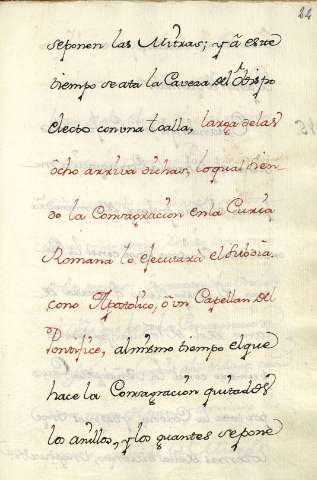 24
se ponen las Mitras; y â este
tiempo se ata la Caveza del Obispo
electo con una toalla, larga de las
ôcho arriva dichas, lo qual sien-
do la Consagracion en la Curia
Romana lo ejecutara el Subdia-
cono Apostolico, ô un Capellan del
Pontifice, al mismo tiempo el que
hace la Consagracion quitados
los anillos, y los guantes se pone